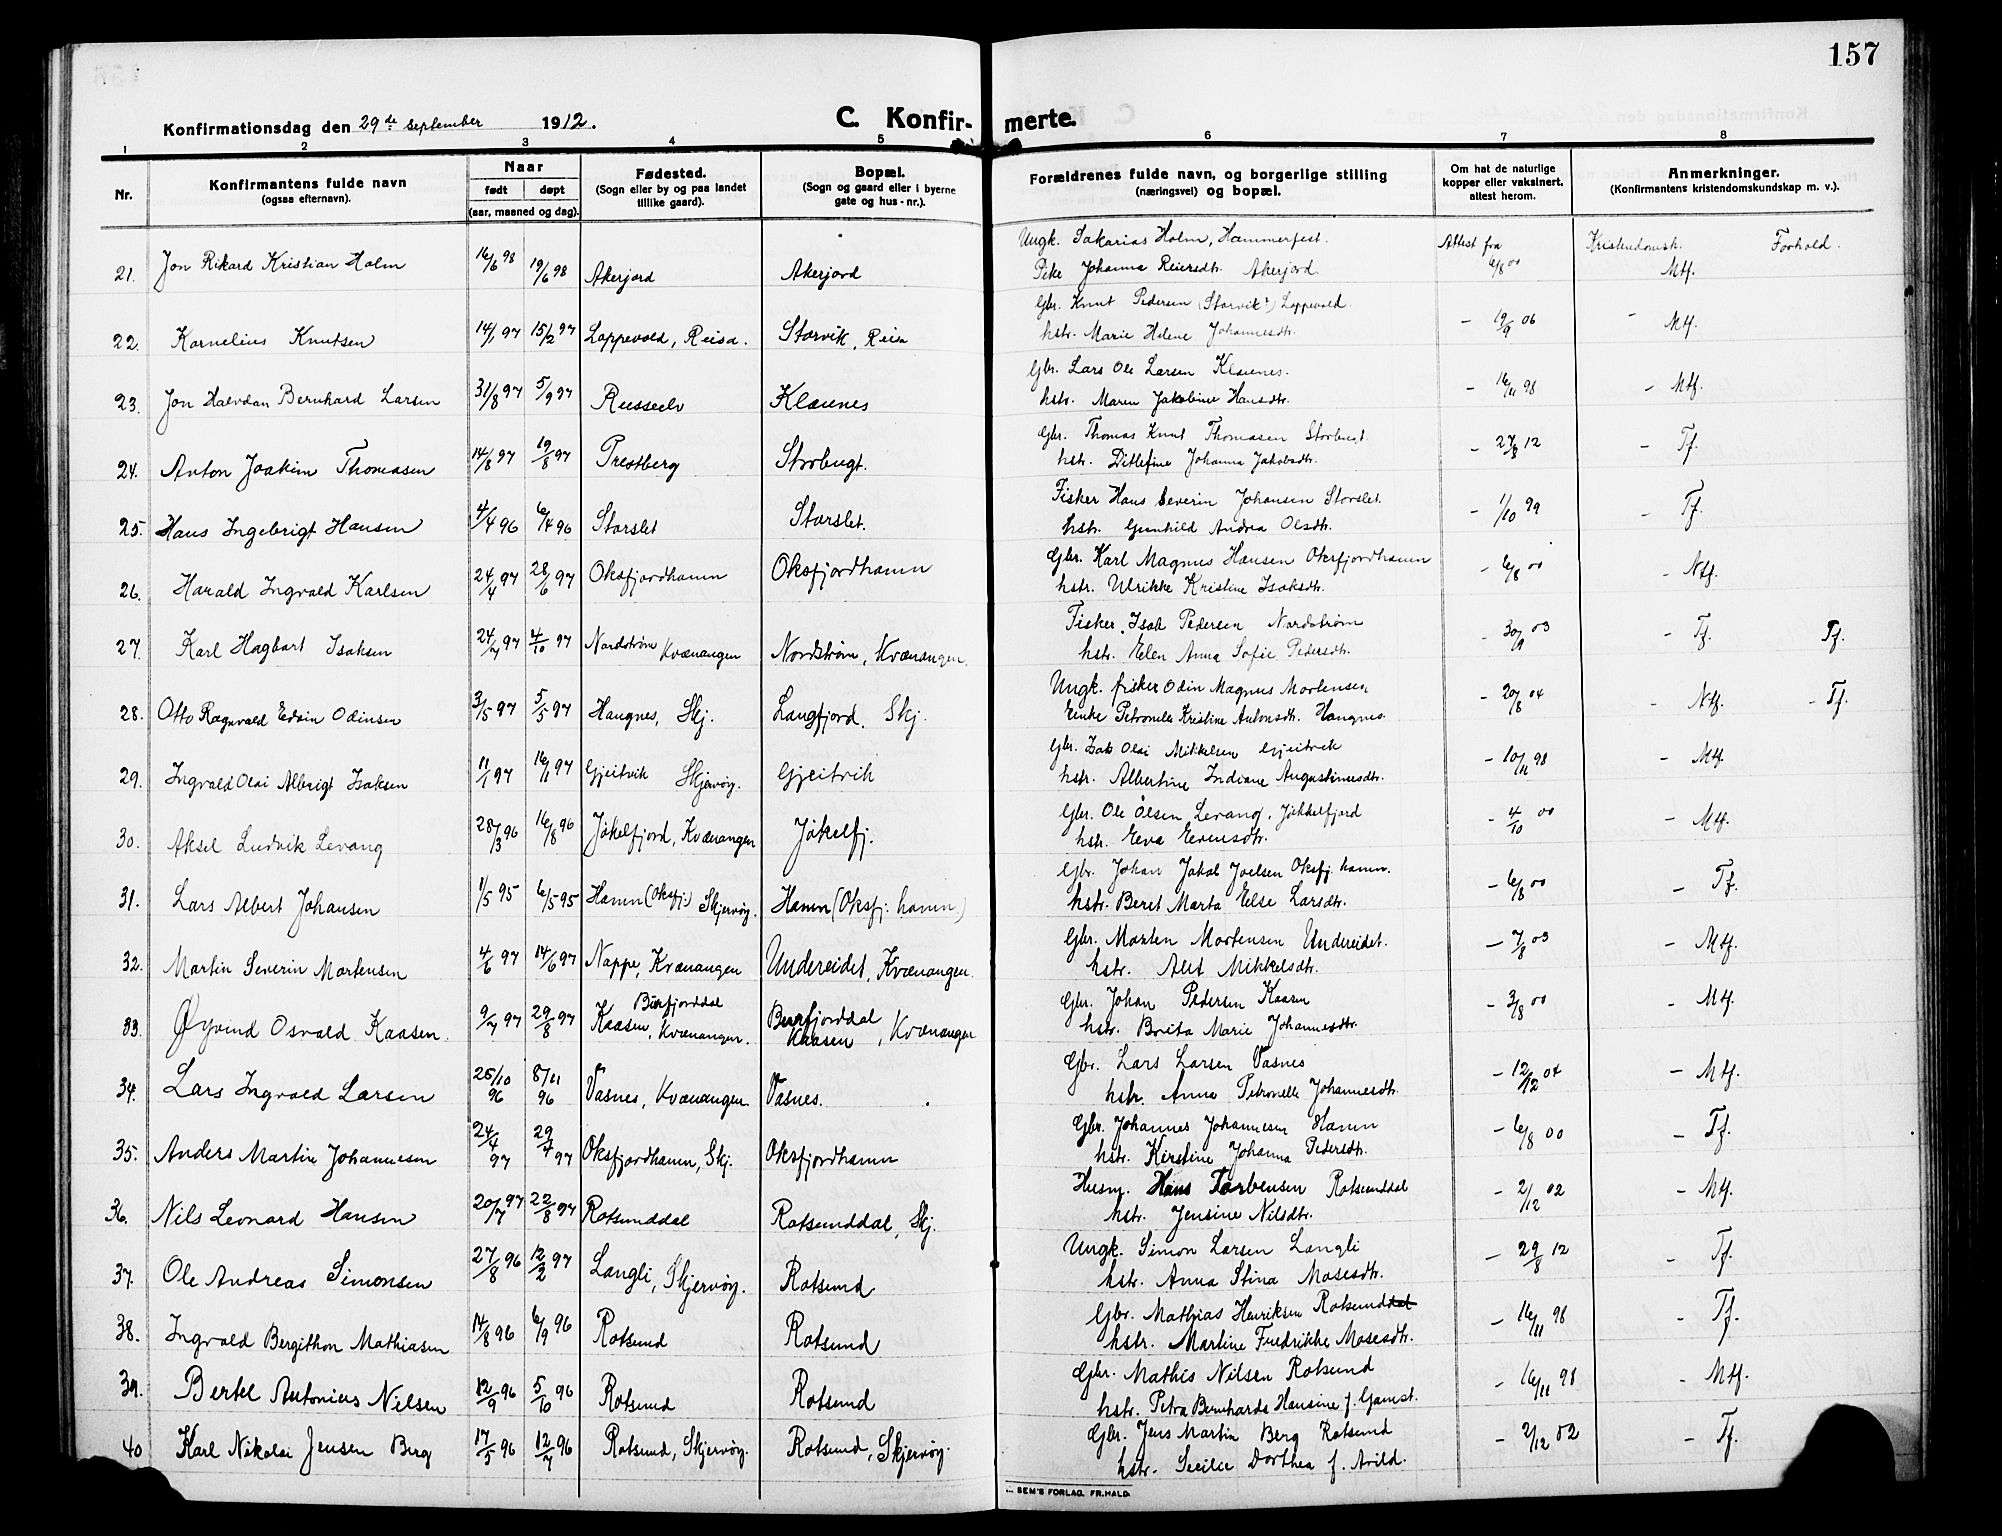 157
Konfirmationsdag den 29de september 1912. C. Konfir- merte.
1 2 3 4 5 6 7 8
Nr. Konfirmantens fulde navn (ogsaa efternavn). Naar født døpt (aar, maaned og dag). Fødested. (Sogn eller by og paa landet tillike gaard). Bopæl. (Sogn og gaard eller i byerne gate og hus-nr.). Forældrenes fulde navn, og borgerlige stilling (næringsvei) og bopæl. Om hat de naturlige kopper eller vaksinert, attest herom. Anmerkninger. (Konfirmantens kristendomskundskap m. v.).
Ungk. Sakarias Holm, Hammerfest. Attest fra Kristendomsk. Forhold.
21. Jon Rikard Kristian Holm 16/6 98 19/6 98 Akerjord Akerjord Pike Johanna Reiersdtr. Akerjord 6/8 00 Mtf.
Gbr. Knut Pedersen (Storvik?) Loppevold.
22. Kornelius Knutsen 14/1 97 15/2 97 Loppevold, Reisa. Storvik, Reisa hstr. Marie Helene Johannesdtr. - 19/9 06 - Mtf.
Gbr. Lars Ole Larsen Klauenes.
23. Jon Halvdan Bernhard Larsen 31/8 97 5/9 97 Russeelv Klauenes hstr. Maren Jakobine Hansdtr. - 16/11 98 - Mtf.
Gbr. Thomas Knut Thomasen Storbugt.
24. Anton Joakim Thomasen 14/8 97 19/8 97 Prestberg Storbugt. hstr. Ditlefine Johanna Jakobsdtr. - 27/8 12 - Tf.
Fisker Hans Severin Johansen Storslet.
25. Hans Ingebrigt Hansen 4/4 96 6/4 96 Storslet Storslet. hstr. Gunhild Andrea Olsdtr. - 1/10 99 - Tf.
Gbr. Karl Magnus Hansen Oksfjordhamn
26. Harald Ingvald Karlsen 24/4 97 28/6 97 Oksfjordhamn Oksfjordhamn hstr. Ulrikke Kristine Isaksdtr. - 6/8 00 - Ntf.
Fisker Isak Pedersen Nordstrøm
27. Karl Hagbart Isaksen 24/7 97 4/10 97 Nordstrøm Kvænangen Nordstrøm, Kvænangen. hstr. Elen Anna Sofie Pedersdtr. - 30/9 03 - Tf. Tf.
Ungk. fisker Odin Magnus Mortensen
28. Otto Ragnvald Edvin Odinsen 3/5 97 5/5 97 Haugnes, Skj. Langfjord, Skj. Enke Petronelle Kristine Antonsdtr. Haugnes. - 20/8 04 - Ntf. - Tf.
Gbr. Isak Olai Mikkelsen Gjeitvik
29. Ingvald Olai Albrigt Isaksen 11/1 97 16/1 97 Gjeitvik Skjervøy. Gjeitvik hstr. Albertine Indiane Augustinusdtr. - 10/11 98 - Mtf.
Gbr. Ole Olsen Levang, Jøkkelfjord
30. Aksel Ludvik Levang 28/3 96 16/8 96 Jøkelfjord, Kvænangen Jøkelfj. hstr. Eva Evensdtr. - 4/10 00 - Mtf.
Gbr. Johan Jakob Joelsen Oksfj. hamn.
31. Lars Albert Johansen 1/5 95 6/5 95 Hamn (Oksfj.) Skjervøy. Hamn (Oksfj. hamn) hstr. Beret Marta Else Larsdtr. - 6/8 00 - Tf.
Gbr. Morten Mortensen Undereidet.
32. Martin Severin Mortensen 4/6 97 14/6 97 Nappe, Kvænangen Undereidet, Kvænangen. hstr. Alet Mikkelsdtr. - 7/8 03 - Mtf.
Gbr. Johan Pedersen Kaasen
33. Øyvind Osvald Kaasen. 9/7 97 29/8 97 Burfjorddal Kaasen, Kvænangen. Burfjorddal Kaasen, Kvænangen hstr. Brita Marie Johannesdtr. - 3/8 00 - Mtf.
Gbr. Lars Larsen Vasnes
34. Lars Ingvald Larsen 25/10 96 8/11 96 Vasnes, Kvænangen Vasnes. hstr. Anna Petronelle Johannesdtr. - 12/12 04 - Mtf.
Gbr. Johannes Johannesen Hamn
35. Anders Martin Johannesen 24/4 97 29/7 97 Oksfjordhamn, Skj. Oksfjordhamn hstr. Kirstine Johanna Pedersdtr. - 6/8 00 - Tf.
Husm. Hans Torbensen Rotsunddal
36. Nils Leonard Hansen 20/7 97 22/8 97 Rotsunddal Rotsunddal, Skj. hstr. Jensine Nilsdtr. - 2/12 02 - Mtf.
Ungk. Simon Larsen Langli
37. Ole Andreas Simonsen 27/8 96 12/2 97 Langli, Skjervøy. Rotsund hstr. Anna Stina Mosesdtr. - 29/8 12 - Tf.
Gbr. Mathias Henriksen Rotsunddal
38. Ingvald Bergithon Mathiasen 14/8 96 6/9 96 Rotsund Rotsund hstr. Martine Fredrikke Mosesdtr. - 16/11 98 - Tf.
Gbr. Mathis Nilsen Rotsund
39. Bertel Antonius Nilsen 12/9 96 5/10 96 Rotsund Rotsund hstr. Petra Bernharda Hansine f. Gamst. - 16/11 98 - Mtf.
Gbr. Jens Martin Berg Rotsund
40 Karl Nikolai Jensen Berg 17/5 96 12/7 96 Rotsund, Skjervøy. Rotsund, Skjervøy. hstr. Secilie Dorthea f. Arild. - 2/12 02 - Tf.
SEM'S FORLAG, FR.HALD.